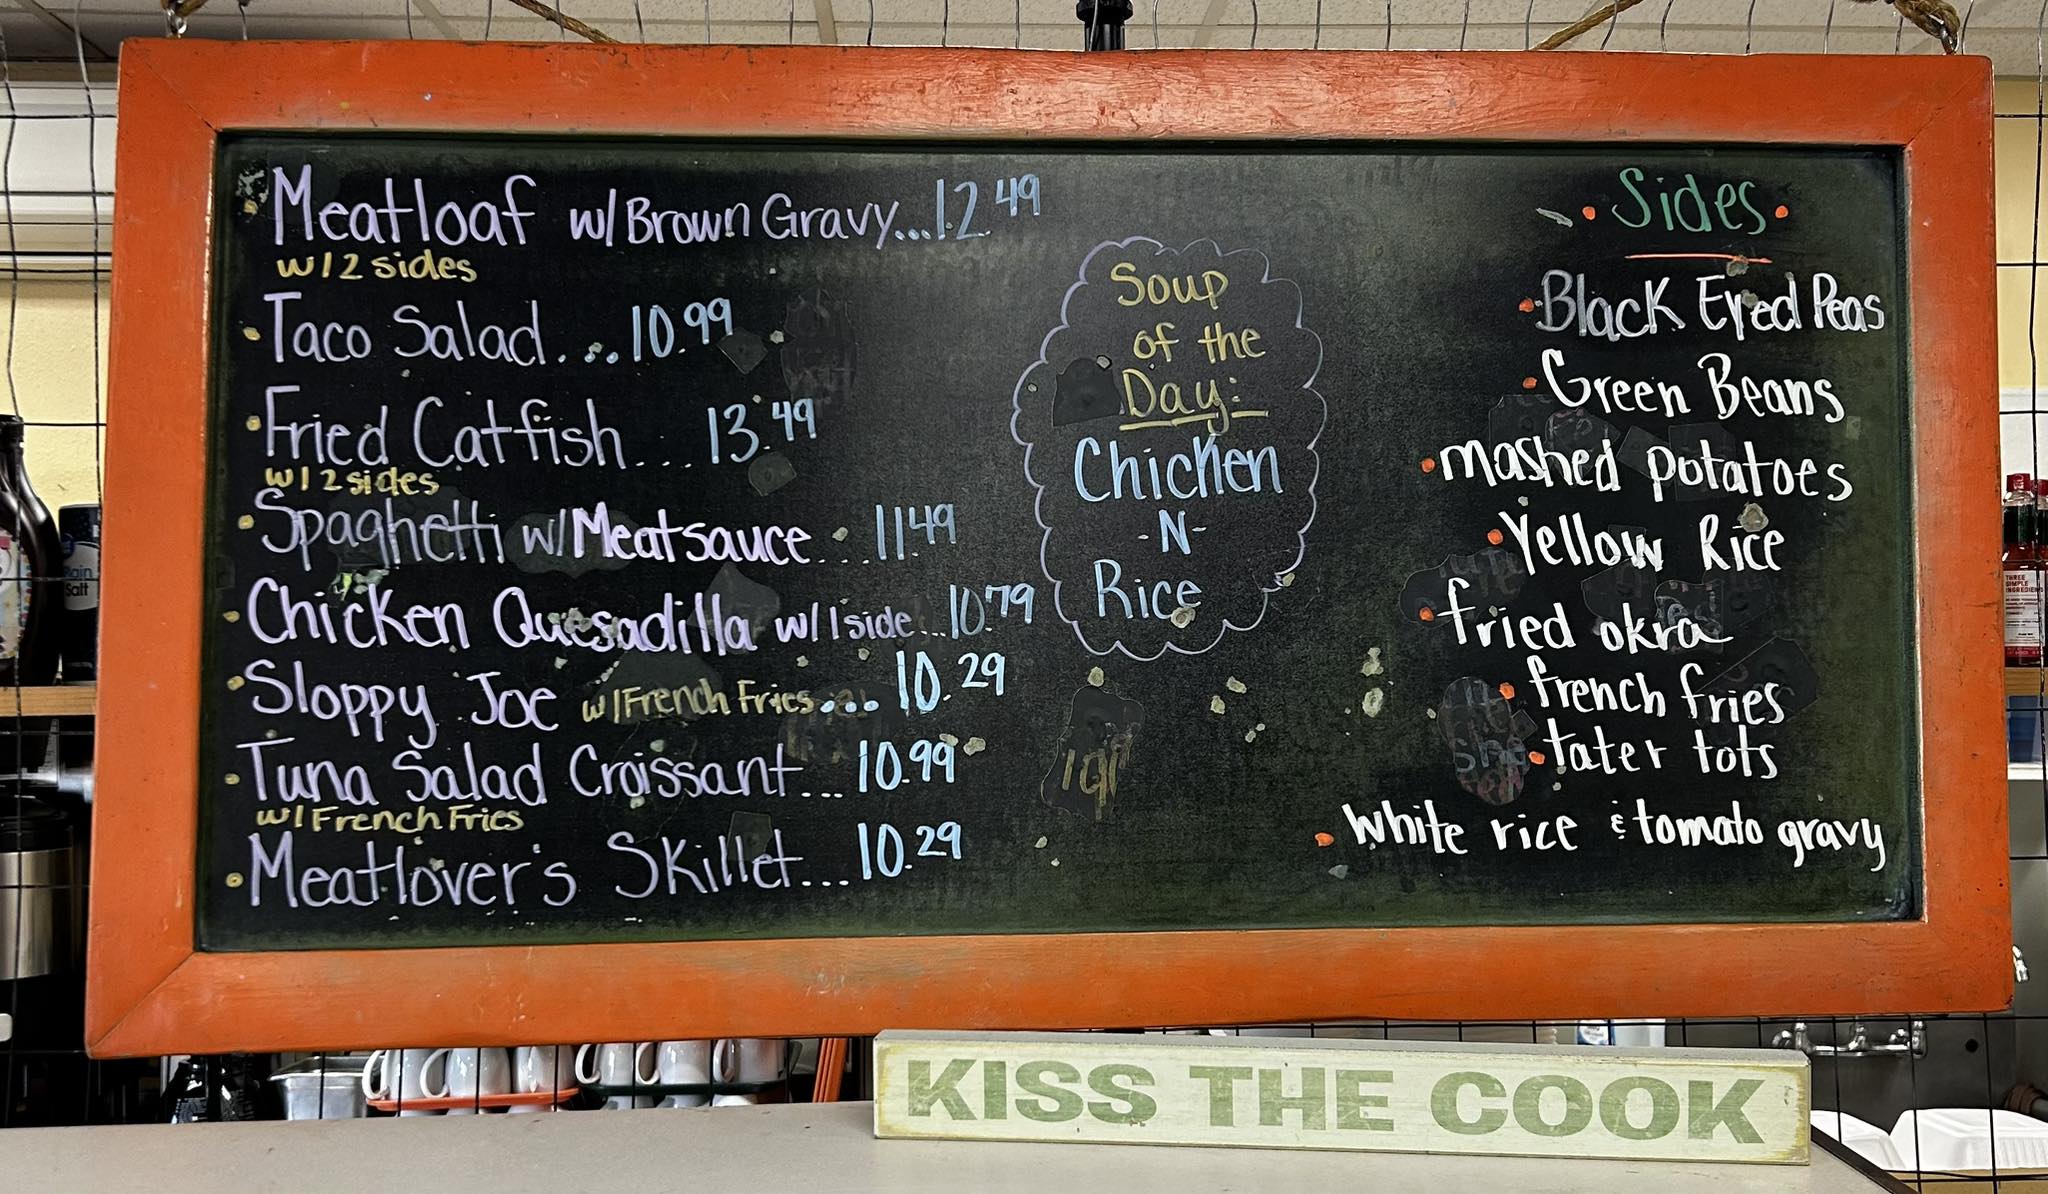 Meatloaf w/Brown Gravy...12.49
w/2 sides
Taco Salad....10.99
Fried Catfish....13.49
w/2 sides
Spaghetti w/Meatsauce...11.49
Chicken Quesadilla w/1side...10.79
Sloppy Joe w/French Fries....10.29
Tuna Salad Croissant...10.99
w/French Fries
Meatlover's Skillet...10.29
Soup
of the
Day:
Chicken
-N-
Rice
Sides
Black Eyed Peas
Green Beans
mashed potatoes
Yellow Rice
fried okra
french fries
tater tots
white rice & tomato gravy
KISS THE COOK
Plain
Salt
THREE
SIMPLE
INGREDIEN